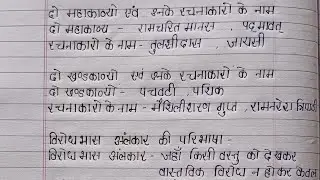 दो महाकाव्यो एवं उनके रचनाकारो के नाम
दो महाकाव्य - रामचरित मानस , पद्मावत्
रचनाकारो के नाम - तुलसीदास , जायसी
दो खण्डकाव्यो एवं उनके रचनाकारो के नाम
दो खण्डकाव्य - पंचवटी , पथिक
रचनाकारो के नाम - मैथिलीशरण गुप्त , रामनरेश त्रिपाठी
विरोधाभास अलंकार की परिभाषा -
विरोधाभास अलंकार - जहाँ किसी वस्तु को देखकर
वास्तविक विरोध न होकर केवल